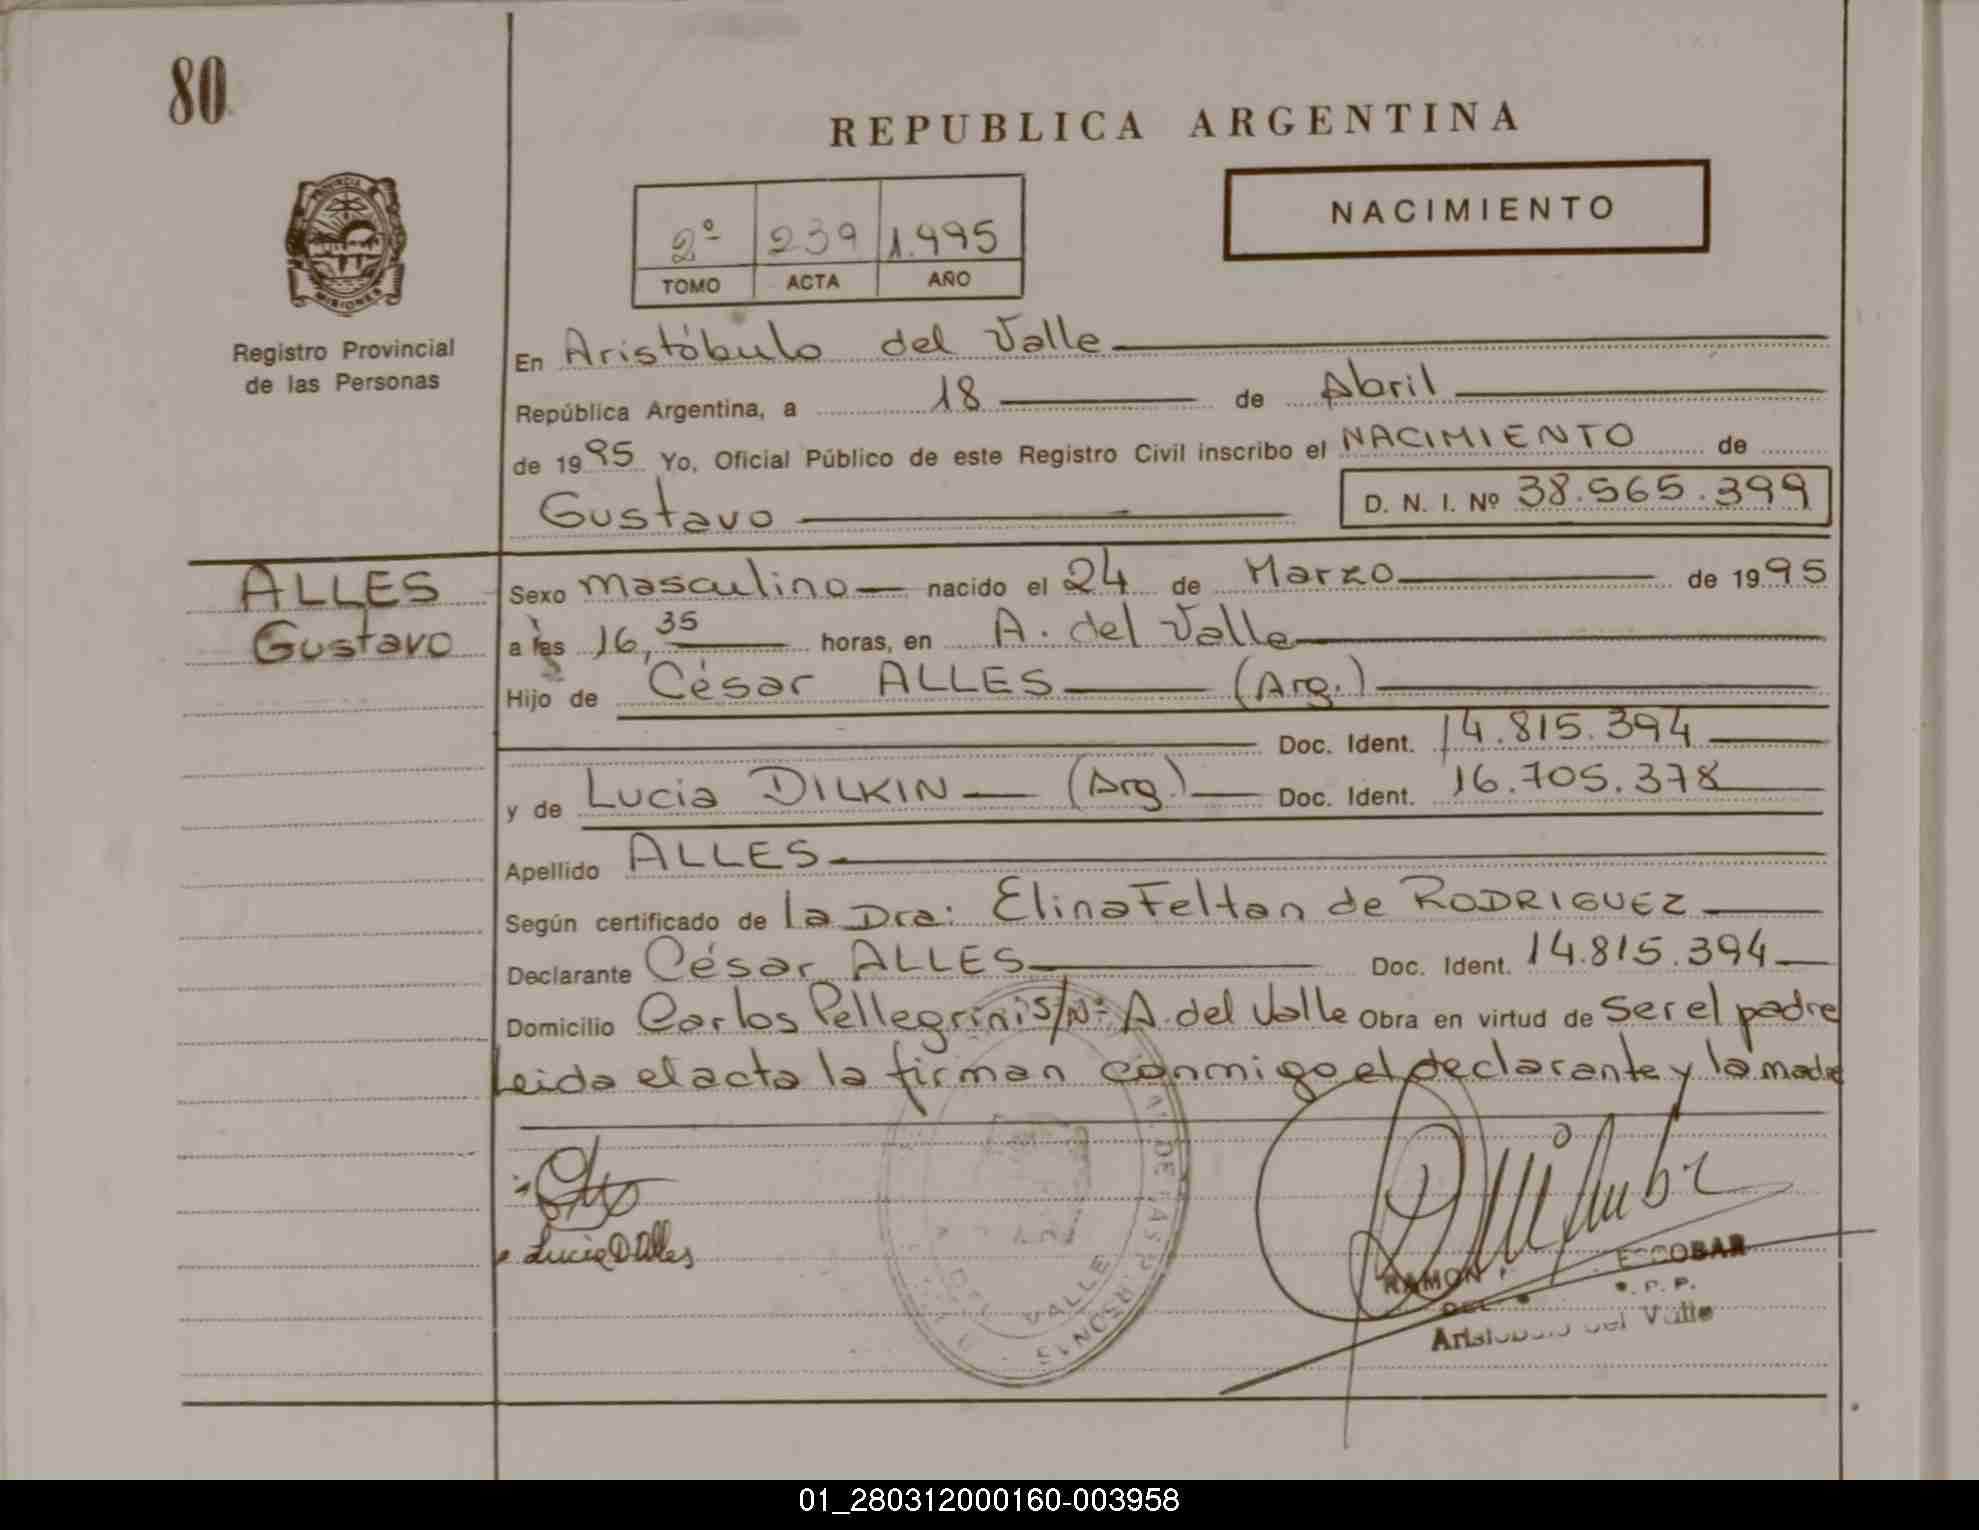 80
REPUBLICA ARGENTINA
NACIMIENTO
2º 239 1.995
TOMO ACTA AÑO
PROVINCIA
MISIONES
Registro Provincial
de las Personas
En Aristóbulo del Valle
República Argentina, a 18 de Abril
de 1995 Yo, Oficial Público de este Registro Civil inscribo el NACIMIENTO de
Gustavo D. N. I. Nº 38.565.399
ALLES
Gustavo
Sexo masculino nacido el 24 de Marzo de 1995
a las 16,35 horas, en A. del Valle
Hijo de César ALLES (Arg.)
Doc. Ident. 14.815.394
y de Lucia DILKIN (Arg.) Doc. Ident. 16.705.378
Apellido ALLES
Según certificado de la Dra: Elina Feltan de RODRIGUEZ
Declarante César ALLES Doc. Ident. 14.815.394
Domicilio Carlos Pellegrini S/Nº A. del Valle Obra en virtud de Ser el padre
Leida el acta la firman conmigo el declarante y la madre
Lucia D Alles
DE LAS PERSONAS
DEL VALLE
RAMON ESCOBAR
Aristobulo del Valle
01_280312000160-003958